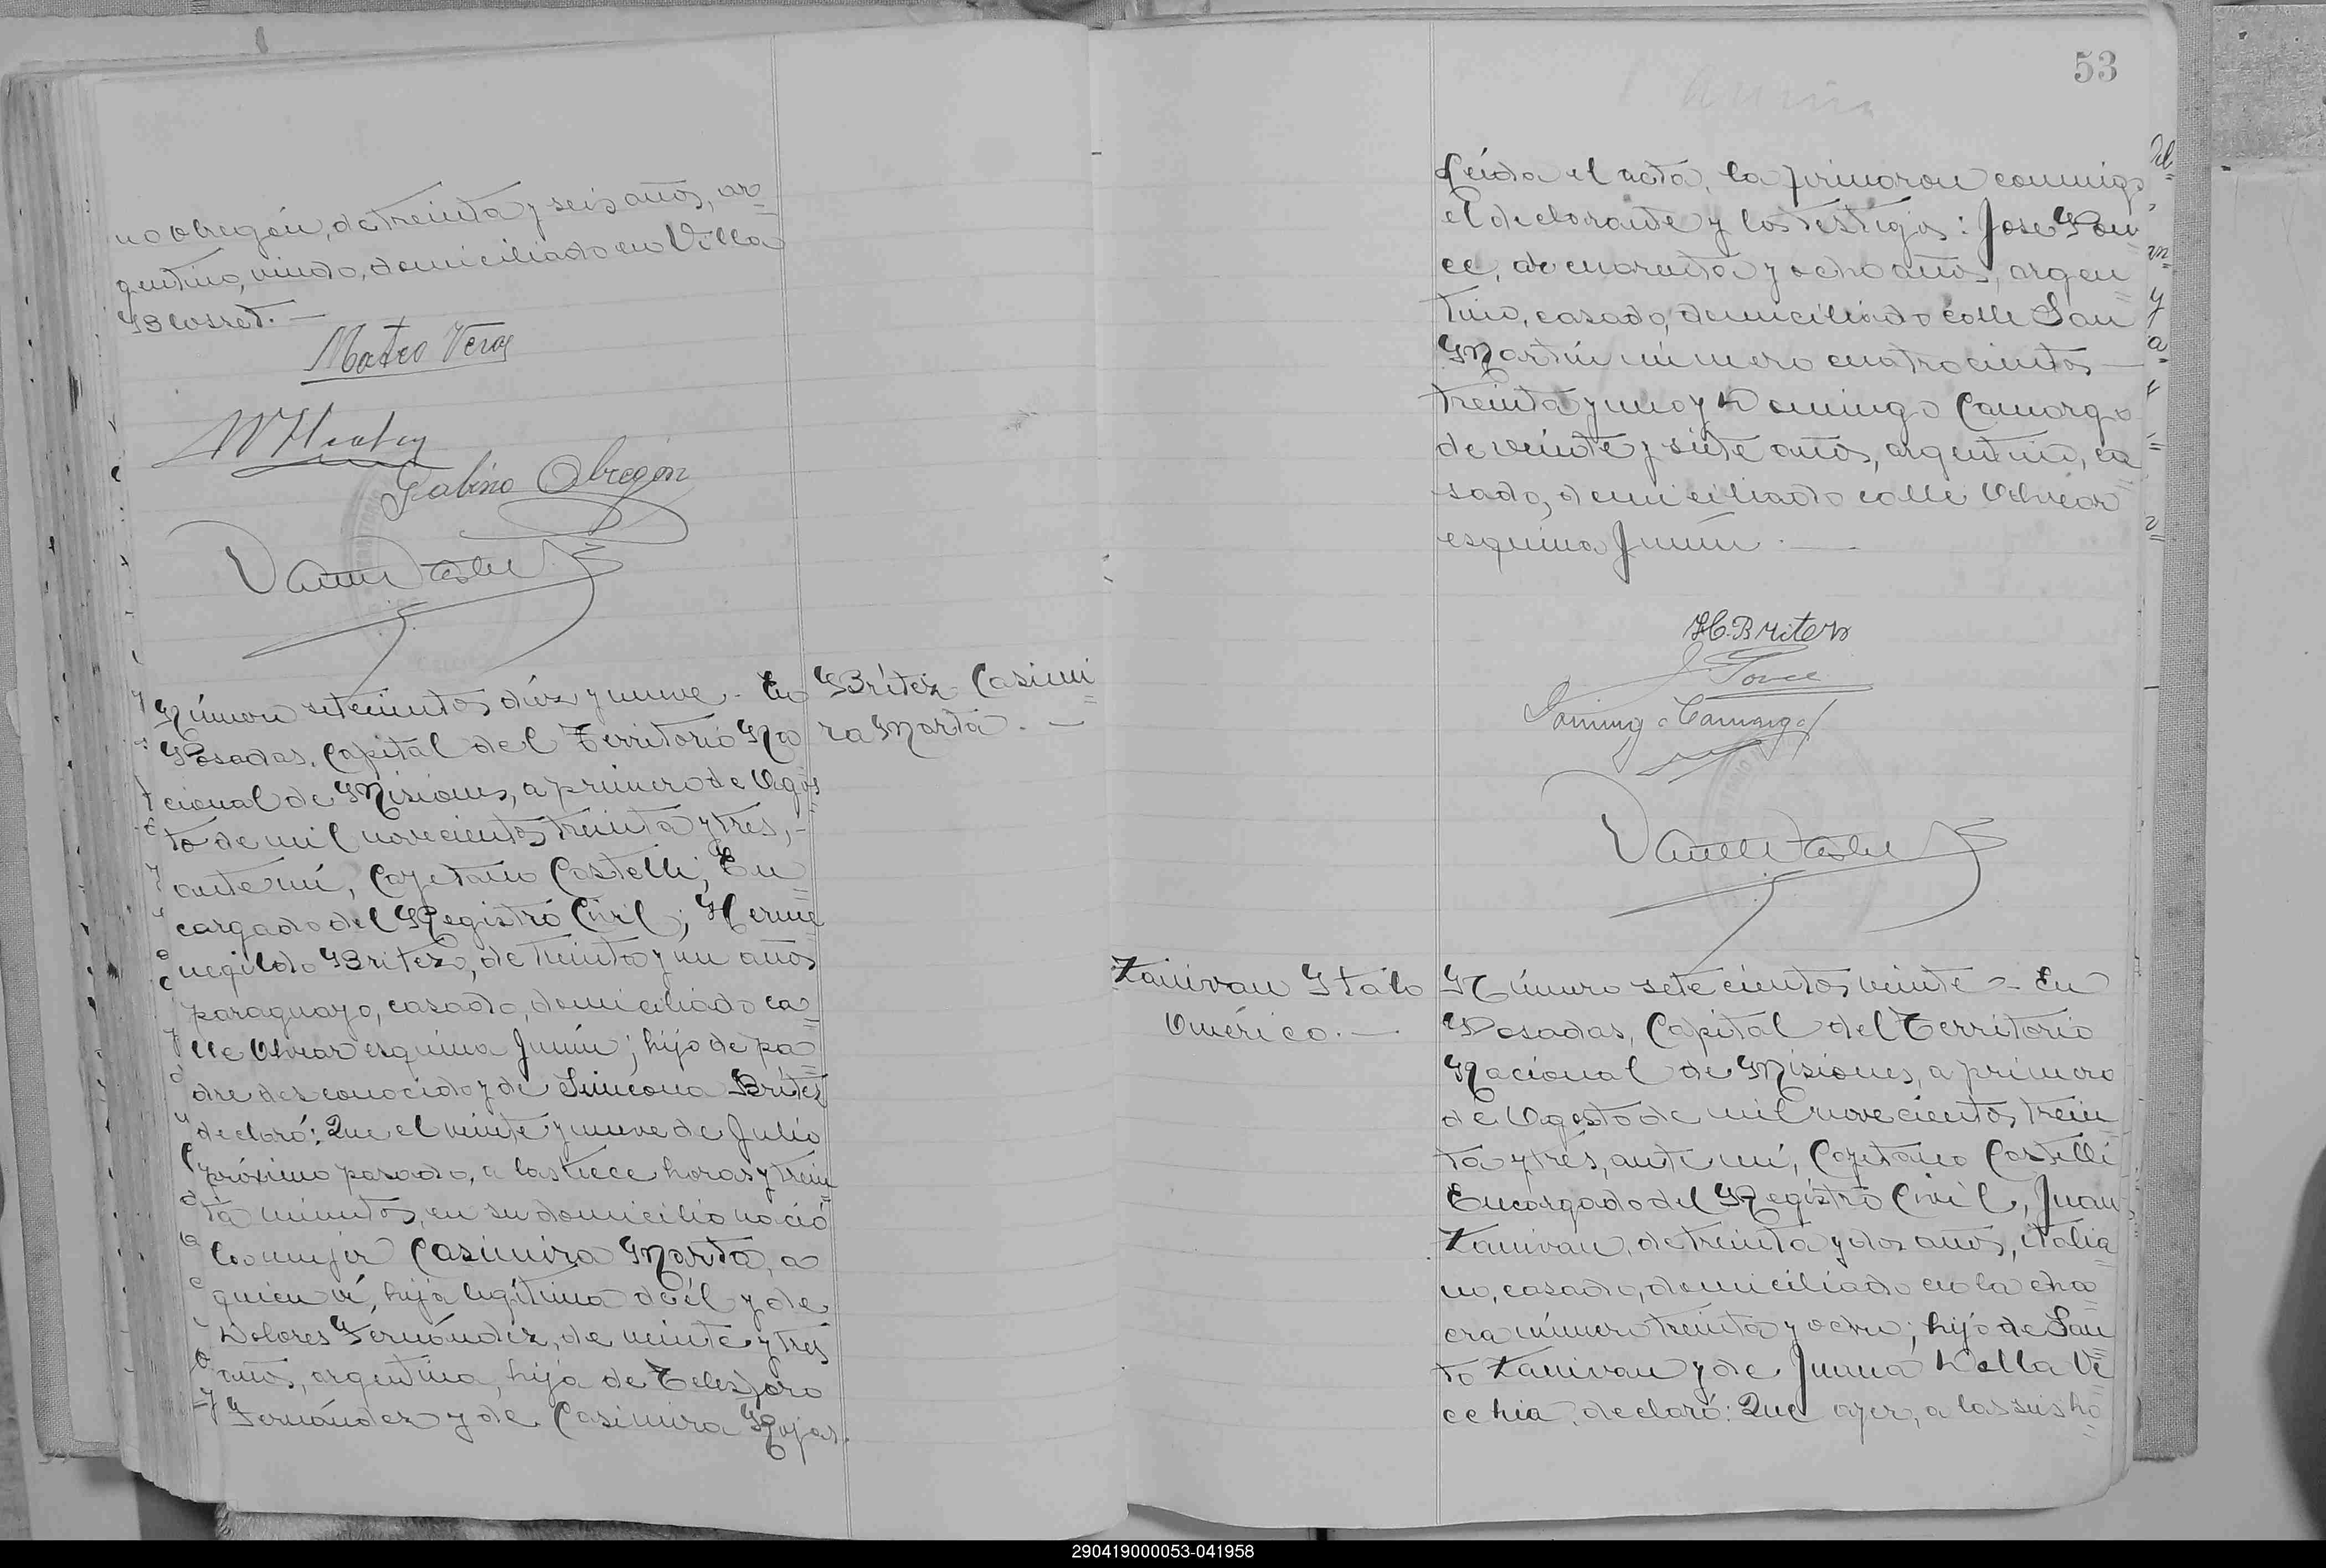 no Obregón, de treinta y seis años, ar=
gentino, viudo, domiciliado en Villa
Blosset. —
Mateo Vera
Gabino Obregón
Número setecientos diez y nueve - En
Posadas, Capital del Territorio Na
cional de Misiones, a primero de Agos=
to de mil novecientos treinta y tres, -
ante mí, Cayetano Castelli, En=
cargado del Registro Civil; Herme
negildo Britez, de treinta y un años
paraguayo, casado, domiciliado ca=
lle Alvear esquina Junín; hijo de pa=
dre desconocido y de Simeona Britez
declaró: Que el veinte y nueve de Julio
próximo pasado, a las trece horas y trein=
ta minutos, en su domicilio nació
la mujer Casimira Marta, a
quien ví, hija legítima de él y de
Dolores Fernández, de veinte y tres
años, argentina, hija de Telesforo
Fernández y de Casimira Rojas.
Britez Casimi=
ra Marta. —
53
Leída el acta, la firmaron conmigo
el declarante y los testigos: José Pon=
ce, de cuarenta y ocho años, argen=
tino, casado, domiciliado calle San
Martín número cuatrocientos —
treinta y uno y Domingo Camargo
de veinte y siete años, argentino, ca=
sado, domiciliado calle Alvear
esquina Junín. —
H. Britez
J. Ponce
Domingo Camargo
Zanivan Italo
Américo. —
Número setecientos veinte - En
Posadas, Capital del Territorio
Nacional de Misiones, a primero
de Agosto de mil novecientos trein
ta y tres, ante mí, Cayetano Castelli
Encargado del Registro Civil, Juan
Zanivan, de treinta y dos años, italia
no, casado, domiciliado en la cha=
cra número treinta y ocho; hijo de San=
to Zanivan y de Juana Della Ve=
cchia, declaró: Que ayer, a las seis ho=
290419000053-041958